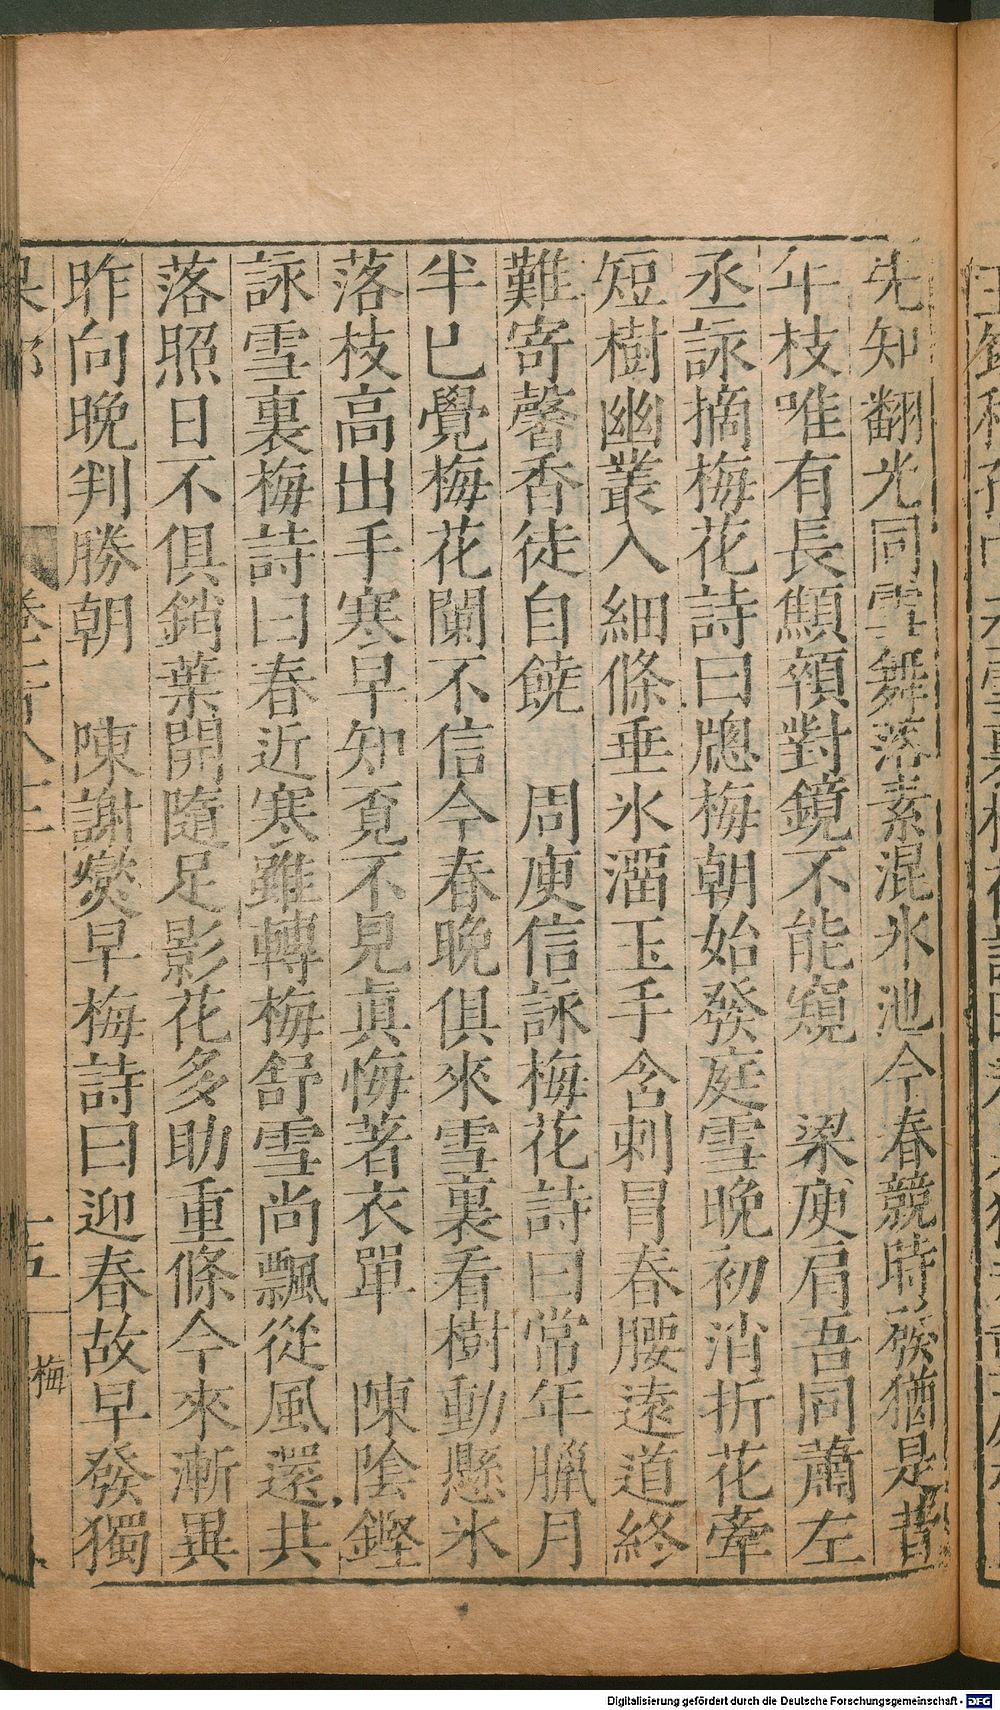 先知翻光同雪舞落素混氷池今春競時發猶是昔
年枝唯有長顦顇對鏡不能窺　梁庾肩吾同蕭左
丞詠摘梅花詩曰牕梅朝始發庭雪晚初消折花牽
短樹幽叢入細條垂氷溜玉手含刺冒春腰遠道終
難寄馨香徒自饒　周庾信詠梅花詩曰常年臘月
半已覺梅花闌不信今春晚俱來雪裏看樹動懸氷
落枝高出手寒早知覓不見真悔著衣單　陳陰鏗
詠雪裏梅詩曰春近寒雖轉梅舒雪尚飄從風還共
落照日不俱銷葉開隨足影花多助重條今來漸異
昨向晚判勝朝　陳謝燮早梅詩曰迎春故早發獨
果部
卷
十五
梅
Digitalisierung gefördert durch die Deutsche Forschungsgemeinschaft - DFG